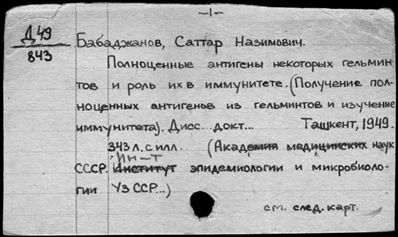 -1-
Д 49
843
Бабаджанов, Саттар Назимович.
Полноценные антигены некоторых гельмин
тов и роль их в иммунитете. (Получение пол-
ноценных антигенов из гельминтов и изучение
иммунитета). Дисс... докт... Ташкент, 1949.
343 л. с илл. (Академия медицинских наук
ИН-Т
СССР. Институт эпидемиологии и микробиоло-
гии Уз ССР...)
см. след. карт.